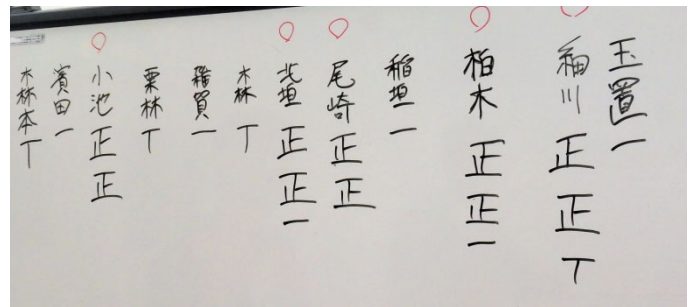 玉置 一
細川 正 正 丅
柏木 正 正 一
稲垣 一
尾崎 正 正
北垣 正 正 一
林 丅
雜賀 一
栗林 丅
小池 正 正
濱田 一
林本 丅